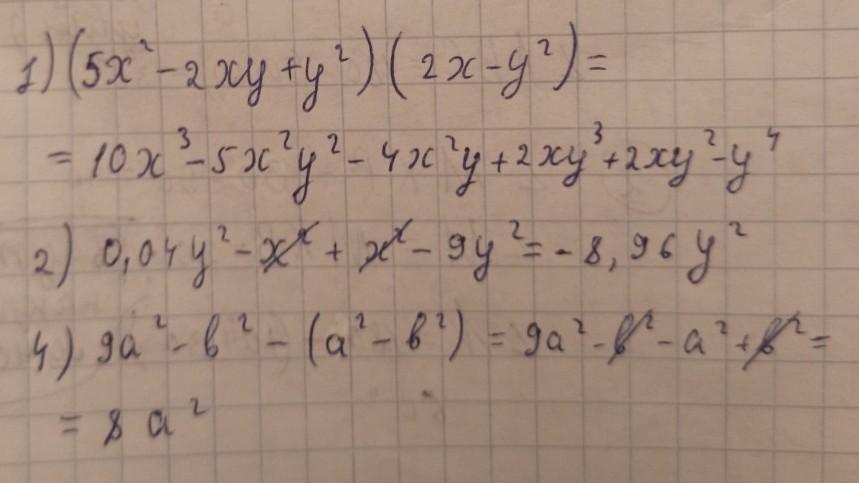 1) (5x² - 2xy + y²)(2x - y²) =
= 10x³ - 5x²y² - 4x²y + 2xy³ + 2xy² - y⁴
2) 0,04y² - x² + x² - 9y² = - 8,96y²
4) 9a² - в² - (a² - в²) = 9a² - в² - a² + в² =
= 8a²